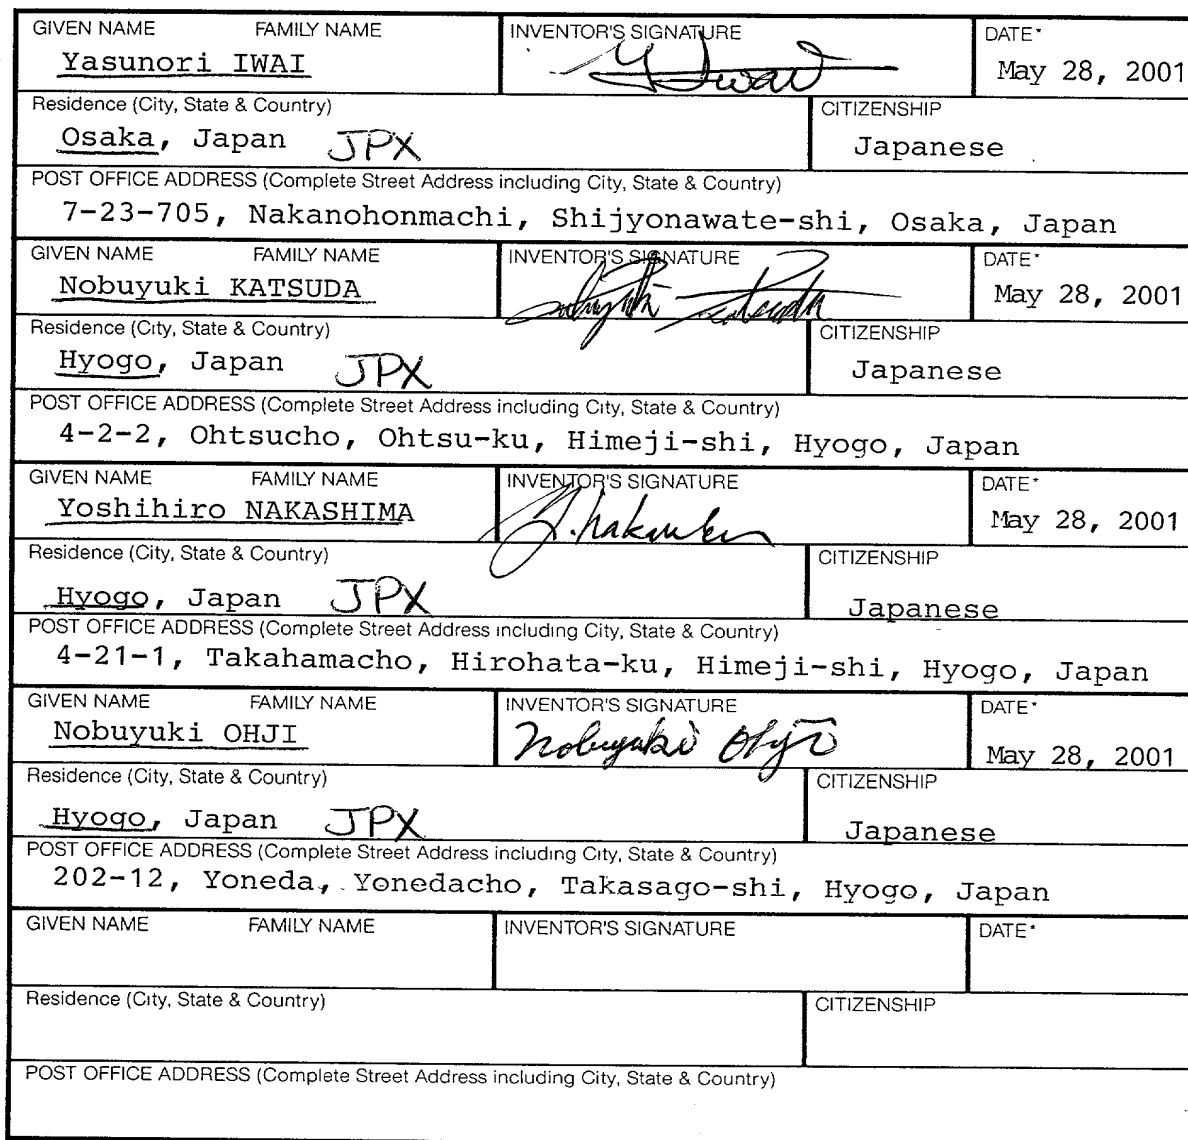 GIVEN NAME FAMILY NAME INVENTOR'S SIGNATURE DATE*
Yasunori IWAI Y. Iwai May 28, 2001
Residence (City, State & Country) CITIZENSHIP
Osaka, Japan JPX Japanese
POST OFFICE ADDRESS (Complete Street Address including City, State & Country)
7-23-705, Nakanohonmachi, Shijyonawate-shi, Osaka, Japan
GIVEN NAME FAMILY NAME INVENTOR'S SIGNATURE DATE*
Nobuyuki KATSUDA Nobuyuki Katsuda May 28, 2001
Residence (City, State & Country) CITIZENSHIP
Hyogo, Japan JPX Japanese
POST OFFICE ADDRESS (Complete Street Address including City, State & Country)
4-2-2, Ohtsucho, Ohtsu-ku, Himeji-shi, Hyogo, Japan
GIVEN NAME FAMILY NAME INVENTOR'S SIGNATURE DATE*
Yoshihiro NAKASHIMA May 28, 2001
Residence (City, State & Country) CITIZENSHIP
Hyogo, Japan JPX Japanese
POST OFFICE ADDRESS (Complete Street Address including City, State & Country)
4-21-1, Takahamacho, Hirohata-ku, Himeji-shi, Hyogo, Japan
GIVEN NAME FAMILY NAME INVENTOR'S SIGNATURE DATE*
Nobuyuki OHJI Nobuyuki Ohji May 28, 2001
Residence (City, State & Country) CITIZENSHIP
Hyogo, Japan JPX Japanese
POST OFFICE ADDRESS (Complete Street Address including City, State & Country)
202-12, Yoneda, Yonedacho, Takasago-shi, Hyogo, Japan
GIVEN NAME FAMILY NAME INVENTOR'S SIGNATURE DATE*
Residence (City, State & Country) CITIZENSHIP
POST OFFICE ADDRESS (Complete Street Address including City, State & Country)